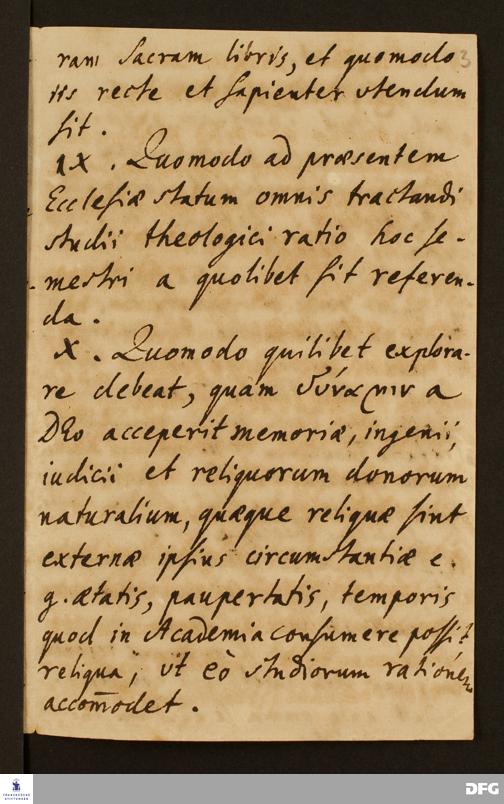 ram Sacram libris, et quomodo 3
iis recte et sapienter utendum
sit.
IX. Quomodo ad præsentem
Ecclesiæ statum omnis tractandi
studii theologici ratio hoc se-
mestri a quolibet sit referen-
da.
X. Quomodo quilibet explora-
re debeat, quam δύναμιν a
DEo acceperit memoriæ, ingenii,
iudicii et reliquorum donorum
naturalium, quæque reliquæ sint
externæ ipsius circumstantiæ e.
g. ætatis, paupertatis, temporis
quod in Academia consumere possit,
reliqua, ut eò studiorum rationem
accom̄odet.
DFG